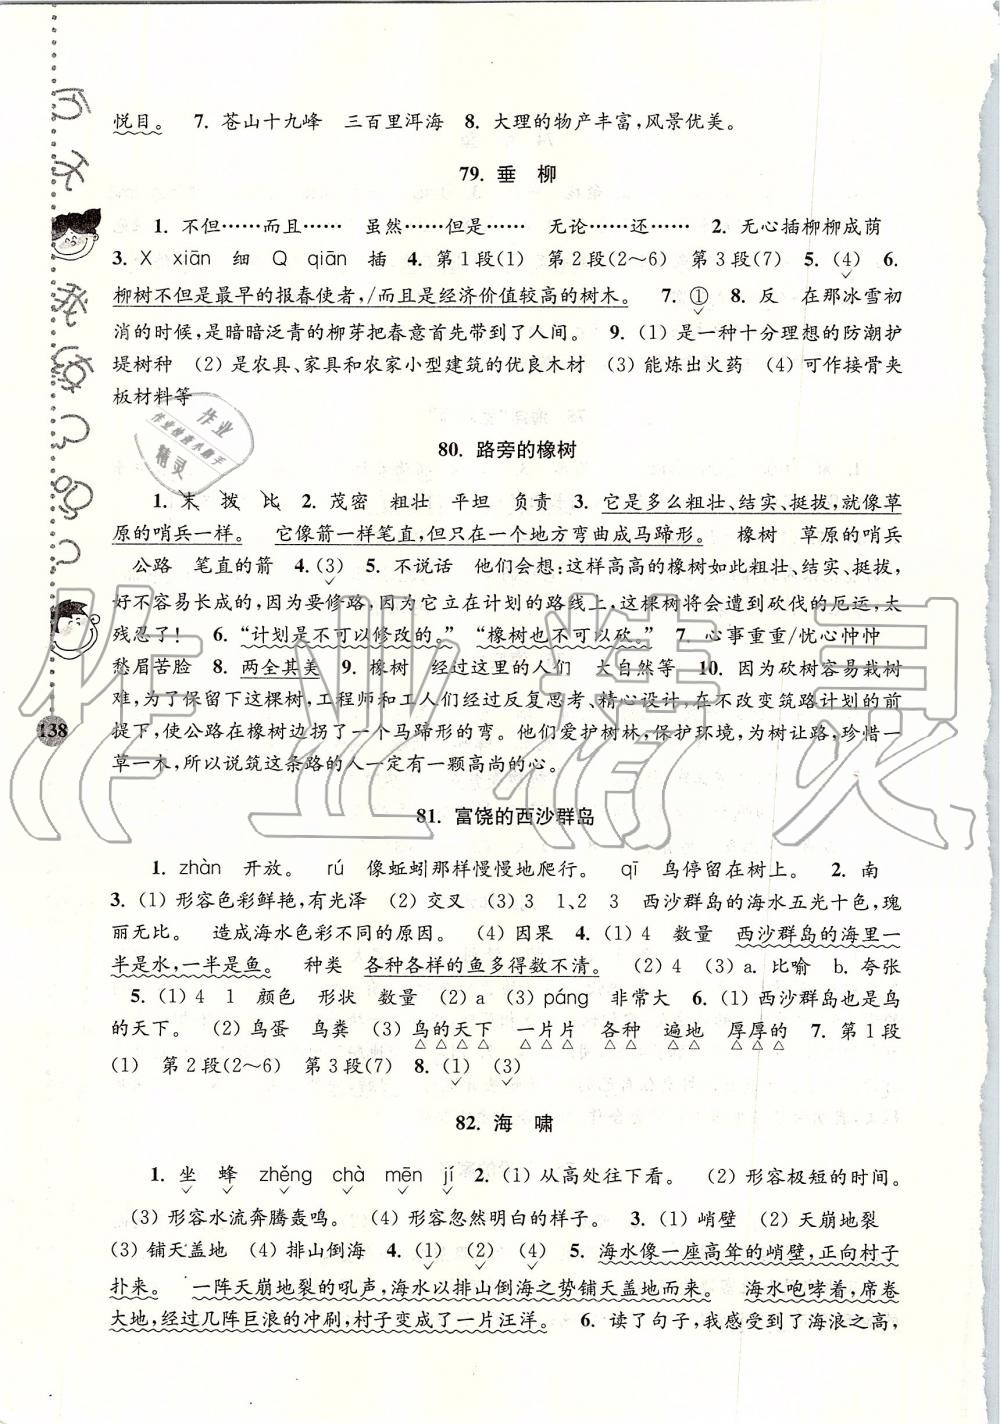 悦目。 7. 苍山十九峰 三百里洱海 8. 大理的物产丰富,风景优美。
79. 垂 柳
1. 不但……而且…… 虽然……但是…… 无论……还…… 2. 无心插柳柳成荫
3. X xiān 细 Q qiān 插 4. 第1段(1) 第2段(2~6) 第3段(7) 5. (4) 6.
柳树不但是最早的报春使者,/而且是经济价值较高的树木。 7. ① 8. 反 在那冰雪初
消的时候,是暗暗泛青的柳芽把春意首先带到了人间。 9. (1) 是一种十分理想的防潮护
堤树种 (2) 是农具、家具和农家小型建筑的优良木材 (3) 能炼出火药 (4) 可作接骨夹
板材料等
80. 路旁的橡树
1. 末 拨 比 2. 茂密 粗壮 平坦 负责 3. 它是多么粗壮、结实、挺拔,就像草
原的哨兵一样。 它像箭一样笔直,但只在一个地方弯曲成马蹄形。 橡树 草原的哨兵
公路 笔直的箭 4. (3) 5. 不说话 他们会想:这样高高的橡树如此粗壮、结实、挺拔,
好不容易长成的,因为要修路,因为它立在计划的路线上,这棵树将会遭到砍伐的厄运,太
残忍了! 6. “计划是不可以修改的。” “橡树也不可以砍。” 7. 心事重重/忧心忡忡
愁眉苦脸 8. 两全其美 9. 橡树 经过这里的人们 大自然等 10. 因为砍树容易栽树
难,为了保留下这棵树,工程师和工人们经过反复思考、精心设计,在不改变筑路计划的前
提下,使公路在橡树边拐了一个马蹄形的弯。他们爱护树林,保护环境,为树让路,珍惜一
草一木,所以说筑这条路的人一定有一颗高尚的心。
138
81. 富饶的西沙群岛
1. zhàn 开放。 rú 像蚯蚓那样慢慢地爬行。 qī 鸟停留在树上。 2. 南
3. (1) 形容色彩鲜艳,有光泽 (2) 交叉 (3) 3 1、2 3 西沙群岛的海水五光十色,瑰
丽无比。 造成海水色彩不同的原因。 (4) 因果 4. (1) 4 数量 西沙群岛的海里一
半是水,一半是鱼。 种类 各种各样的鱼多得数不清。 (2) 4 (3) a. 比喻 b. 夸张
5. (1) 4 1 颜色 形状 数量 (2) a (3) páng 非常大 6. (1) 西沙群岛也是鸟
的天下。 (2) 鸟蛋 鸟粪 (3) 鸟的天下 一片片 各种 遍地 厚厚的 7. 第1段
(1) 第2段(2~6) 第3段(7) 8. (1) (3)
82. 海 啸
1. 坐 蜂 zhěng chà mēn jí 2. (1) 从高处往下看。 (2) 形容极短的时间。
(3) 形容水流奔腾轰鸣。 (4) 形容忽然明白的样子。 3. (1) 峭壁 (2) 天崩地裂
(3) 铺天盖地 (4) 排山倒海 4. (1) (2) (4) 5. 海水像一座高耸的峭壁,正向村子
扑来。 一阵天崩地裂的吼声,海水以排山倒海之势铺天盖地而来。 海水咆哮着,席卷
大地,经过几阵巨浪的冲刷,村子变成了一片汪洋。 6. 读了句子,我感受到了海浪之高,
作业精灵